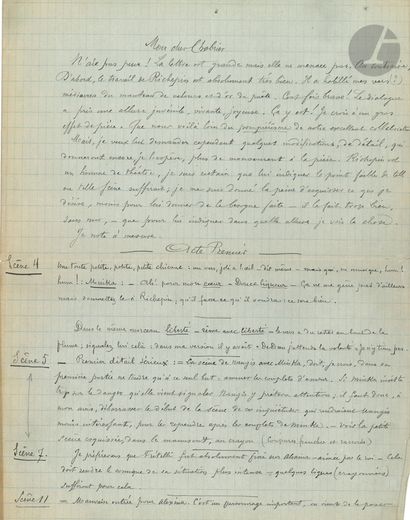 Mon cher Chabrier
N'aie pas peur ! La lettre est grande mais elle ne menace pas. Au contraire.
D'abord, le travail de Richepin est absolument très bien. Il a habillé mes vers
du manteau de velours et d'or du poète. Cent fois bravo ! Le dialogue
a pris une allure juvénile, vivante, joyeuse. Ça y est ! Je crois à un gros
effet de pièce. Que nous voilà loin du de notre excellent
Mais, je veux lui demander cependant quelques modifications, de détail, qui
donneront encore, je l'espère, plus de mouvement à la pièce. Richepin est
un homme de théâtre, je suis certain que lui indiquer le point faible de telle
ou telle scène suffirait, je me suis donné la peine d'esquisser ce que je
désire, moins pour lui donner de la besogne faite - il la fait trop bien,
sans moi, - que pour lui indiquer dans quelle allure je vois la chose.
Je note à mesure.
Acte Premier
Scène 4
Une toute petite, petite, petite chicane : un vers, joli à l'œil - dit même - mais qui, en musique, hum !
hum ! : Minka : - pour mon cœur - Douce liqueur - Ça ne me gêne pas d'ailleurs
mais soumettez-le à Richepin, qu'il fasse ce qu'il voudra : ce sera bien.
Dans le même morceau liberté - rime avec liberté - le vers a du rester au bout de la
plume ; signalez-lui cela : dans ma version il y avait :
Scène 5
- Premier détail sérieux : = La scène de Nangis avec Minka, doit, je crois, dans sa
première partie ne tendre qu'à ce seul but : amener les couplets d'amour. Si Minka insiste
trop sur le danger qu'elle vient signaler Nangis y prêterait attention, il faut donc, à
mon avis, débarrasser le début de la scène de ces inquiétudes qui rendraient Nangis
moins intéressant, pour les reprendre après les couplets de Minka. - Voir la petite
scène esquissée, dans le manuscrit, au crayon
Scène 7.
Je préférerais que Fritelli fut absolument fixé sur - aimée par le roi - Cela
doit rendre le comique de sa situation plus intense - quelques lignes (crayonnées)
suffiront pour cela.
Scène 11
- Mauvaise entrée pour Alexina. C'est un personnage important, en